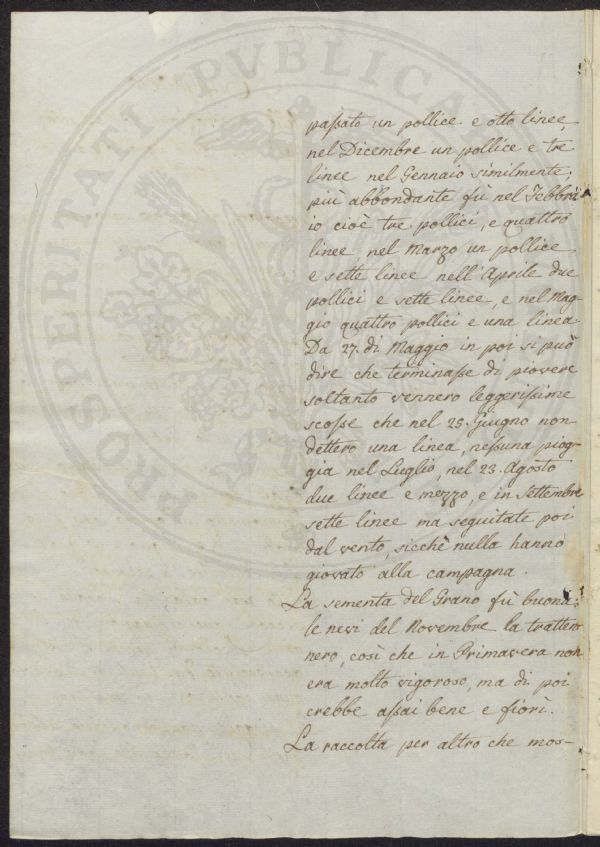 PROSPERITATI PVBLICAE
paſsato un pollice e otto linee,
nel Dicembre un pollice e tre
linee nel Gennaio similmente;
più abbondante fù nel Febbra
io cioè tre pollici, e quattro
linee nel Marzo un pollice
e sette linee nell'Aprile due
pollici e sette linee, e nel Mag-
gio quattro pollici e una linea.
Da 27. di Maggio in poi si può
dire che terminaſse di piovere
soltanto vennero leggeriſsime
scoſse che nel 25. Giugno non
dettero una linea, neſsuna piog-
gia nel Luglio, nel 23. Agosto
due linee e mezzo, e in Settembre
sette linee ma seguitate poi
dal vento, sicchè nulla hanno
giovato alla campagna.
La sementa del Grano fù buona;
le nevi del Novembre la tratten
nero, così che in Primavera non
era molto vigoroso, ma di poi
crebbe aſsai bene e fiorì.
La raccolta per altro che mos-